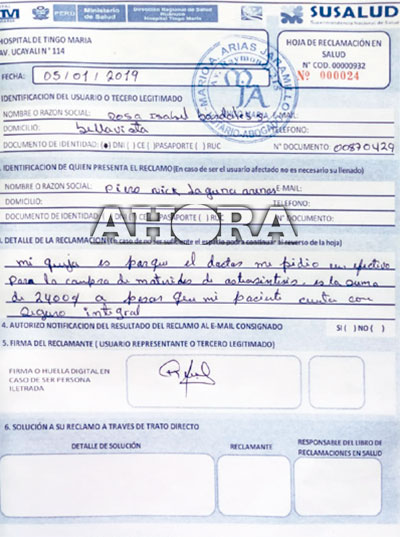 PERÚ Ministerio de Salud
Hospital Tingo María
SUSALUD
Superintendencia Nacional de Salud
HOSPITAL DE TINGO MARIA
AV. UCAYALI N° 114
HOJA DE RECLAMACIÓN EN SALUD
N° COD. 00000932
Nº 000024
MARIO A. ARIAS JARAMILLO
FECHA: 05/01/2019
IDENTIFICACIÓN DEL USUARIO O TECERO LEGITIMADO
NOMBRE O RAZON SOCIAL: Rosa Isabel
DOMICILIO: bellavista TELEFONO:
DOCUMENTO DE IDENTIDAD: DNI ( ) CE ( )PASAPORTE ( ) RUC N° DOCUMENTO: 00870429
IDENTIFICACION DE QUIEN PRESENTA EL RECLAMO (En caso de ser usuario afectado no es necesario su llenado)
NOMBRE O RAZON SOCIAL: nick laguna E-MAIL:
DOMICILIO: TELEFONO:
DOCUMENTO DE IDENTIDAD DNI ( ) CE ( )PASAPORTE ( ) RUC N° DOCUMENTO:
AHORA
DETALLE DE LA RECLAMACIÓN (En caso de no ser suficiente el espacio podrá continuar al reverso de la hoja)
mi queja es porque el doctor me pidio en efectivo
para la compra de materiales de es la suma
de 2400 a pesar que mi paciente cuenta con
seguro integral
4. AUTORIZO NOTIFICACIÓN DEL RESULTADO DEL RECLAMO AL E-MAIL CONSIGNADO SI ( ) NO ( )
5. FIRMA DEL RECLAMANTE ( USUARIO REPRESENTANTE O TERCERO LEGITIMADO)
FIRMA O HUELLA DIGITAL EN
CASO DE SER PERSONA
ILETRADA
6. SOLUCIÓN A SU RECLAMO A TRAVES DE TRATO DIRECTO
DETALLE DE SOLUCIÓN RECLAMANTE RESPONSABLE DEL LIBRO DE RECLAMACIONES EN SALUD